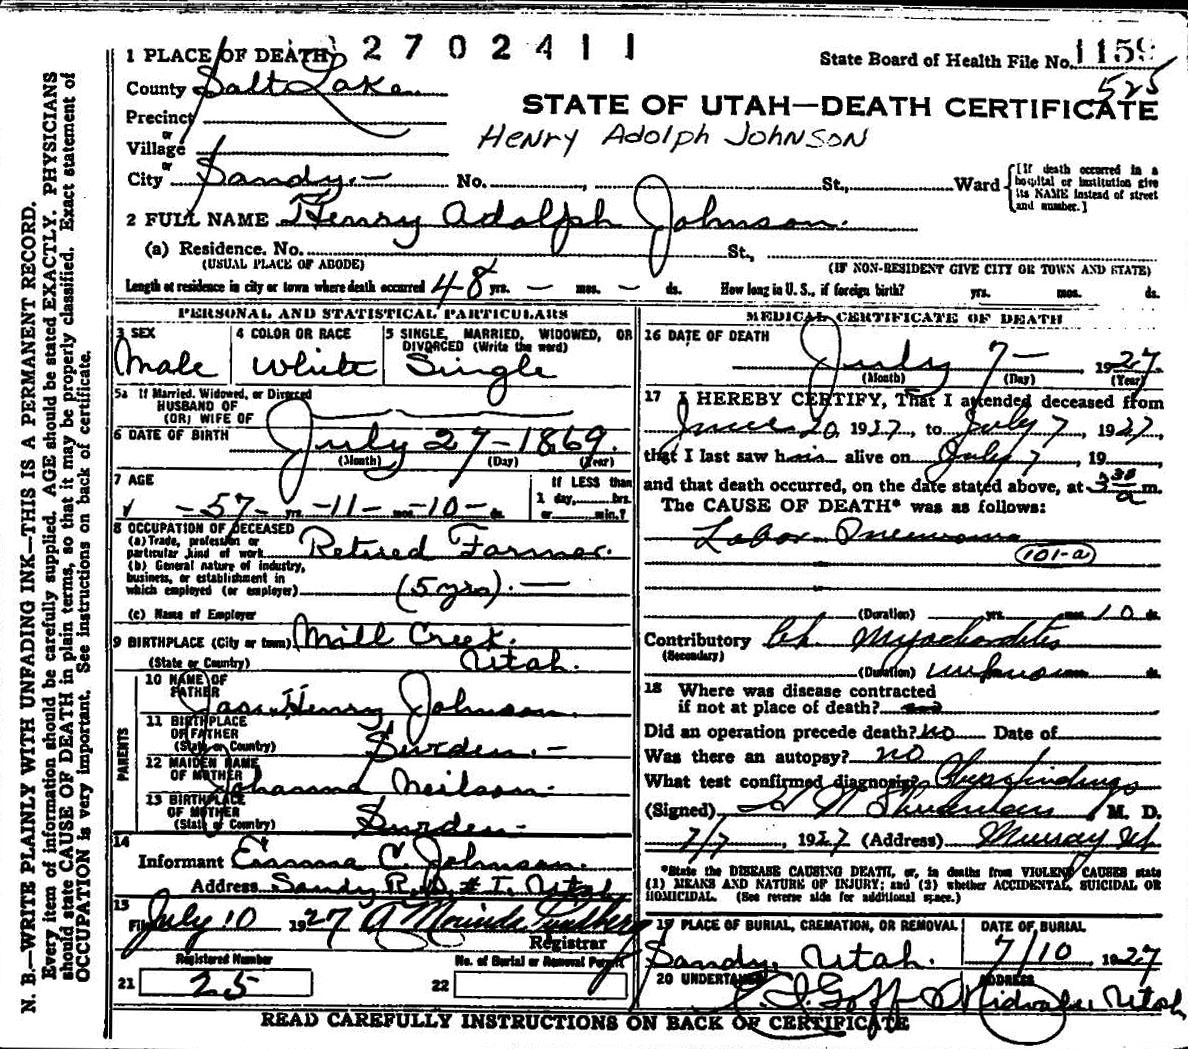 2702411
1 PLACE OF DEATH
State Board of Health File No. 1159
525
County Salt Lake
STATE OF UTAH—DEATH CERTIFICATE
Precinct
or
Village
Henry Adolph Johnson
or
City Sandy.— No. , St., Ward
[If death occurred in a hospital or institution give its NAME instead of street and number.]
2 FULL NAME Henry Adolph Johnson.
(a) Residence. No. St.,
(USUAL PLACE OF ABODE) (IF NON-RESIDENT GIVE CITY OR TOWN AND STATE)
Length of residence in city or town where death occurred 48 yrs. — mos. — ds. How long in U. S., if foreign birth? yrs. mos. ds.
PERSONAL AND STATISTICAL PARTICULARS
3 SEX
Male
4 COLOR OR RACE
White
5 SINGLE, MARRIED, WIDOWED, OR
DIVORCED (Write the word)
Single
5a If Married, Widowed, or Divorced
HUSBAND OF
(OR) WIFE OF
6 DATE OF BIRTH July 27-1869.
(Month) (Day) (Year)
7 AGE
-57- yrs. -11- mos. -10- ds.
If LESS than
1 day, hrs.
or min.?
8 OCCUPATION OF DECEASED
(a) Trade, profession or
particular kind of work Retired Farmer.
(b) General nature of industry,
business, or establishment in
which employed (or employer) (5 yrs).—
(c) Name of Employer
9 BIRTHPLACE (City or town) Mill Creek.
(State or Country) Utah.
PARENTS
10 NAME OF
FATHER Jas. Henry Johnson.
11 BIRTHPLACE
OF FATHER
(State or Country) Sweden.—
12 MAIDEN NAME
OF MOTHER Johanna Neilson.
13 BIRTHPLACE
OF MOTHER
(State or Country) Sweden—
14
Informant Emma C. Johnson.
Address Sandy R.D. # 1, Utah
15
Filed July 10 1927
Registrar
Registered Number
21 25
No. of Burial or Removal Permit
22
MEDICAL CERTIFICATE OF DEATH
16 DATE OF DEATH
July 7— 1927
(Month) (Day) (Year)
17 I HEREBY CERTIFY, That I attended deceased from
June 20, 1927, to July 7, 1927,
that I last saw him alive on July 7, 19
and that death occurred, on the date stated above, at 3 30 a m.
The CAUSE OF DEATH* was as follows:
Lobar Pneumonia
101-a
(Duration) yrs. mos. 10 ds.
Contributory Ch. Myochorditis
(Secondary)
(Duration) unknown ds.
18 Where was disease contracted
if not at place of death?
Did an operation precede death? no Date of
Was there an autopsy? no
What test confirmed diagnosis? Phys findings
(Signed) M. D.
7/7, 1927 (Address) Murray Ut.
*State the DISEASE CAUSING DEATH, or, in deaths from VIOLENT CAUSES state
(1) MEANS AND NATURE OF INJURY; and (2) whether ACCIDENTAL, SUICIDAL OR
HOMICIDAL. (See reverse side for additional space.)
19 PLACE OF BURIAL, CREMATION, OR REMOVAL
Sandy, Utah.
DATE OF BURIAL
7/10 1927
20 UNDERTAKER
Goff
ADDRESS
Midvale, Utah
READ CAREFULLY INSTRUCTIONS ON BACK OF CERTIFICATE
N. B.—WRITE PLAINLY WITH UNFADING INK—THIS IS A PERMANENT RECORD.
Every item of information should be carefully supplied. AGE should be stated EXACTLY. PHYSICIANS
should state CAUSE OF DEATH in plain terms, so that it may be properly classified. Exact statement of
OCCUPATION is very important. See instructions on back of certificate.